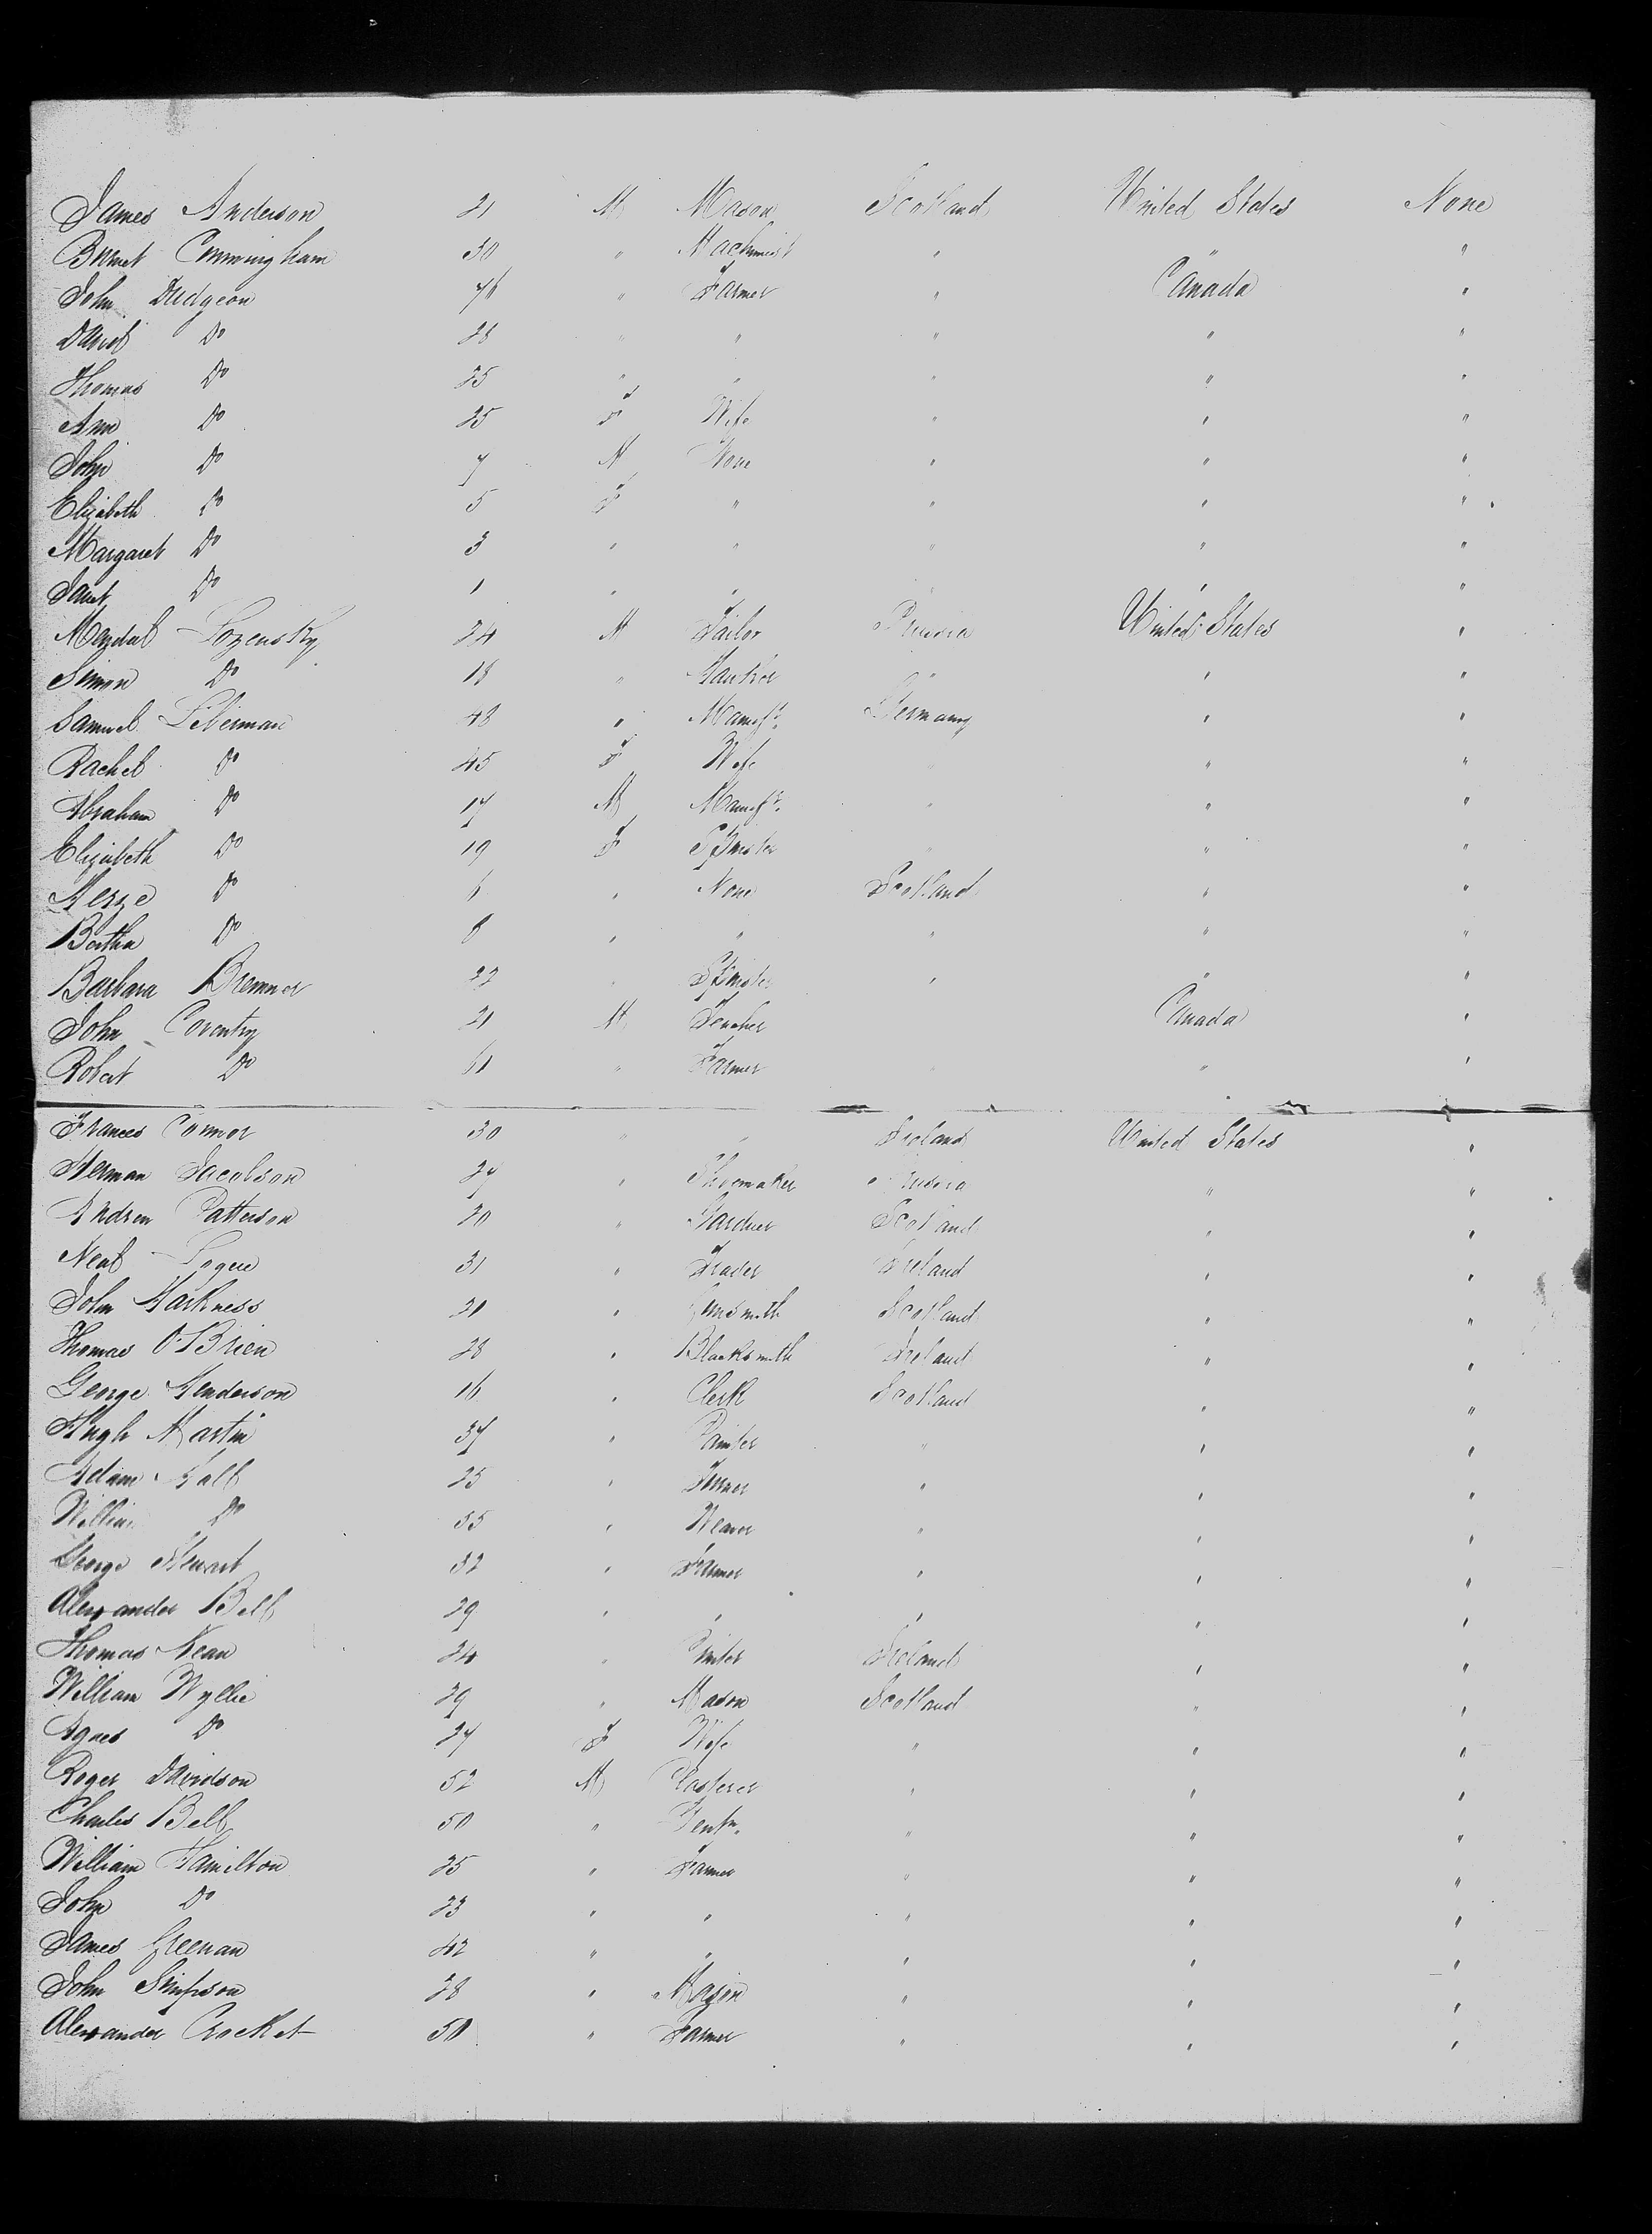 James Anderson 21 M Mason Scotland United States None
Burnet Cunningham 30 " Machinist " " "
John Dudgeon 76 " Farmer " Canada "
David Do 28 " " " " "
Thomas Do 25 " " " " "
Ann Do 25 F Wife " " "
John Do 7 M None " " "
Elizabeth Do 5 F " " " "
Margaret Do 3 " " " " "
Janet Do 1 " " " " "
Lozensky 24 M Tailor Prussia United States "
Simon Do 18 " " " "
Samuel Liberman 48 " Manufr. Germany " "
Rachel Do 45 F Wife " " "
Abraham Do 17 M Manufr. " " "
Elizabeth Do 19 F Spinster " " "
Do 6 " None Scotland " "
Bertha Do 8 " " " " "
Barbara Bremner 22 " Spinster " " "
John Coventry 21 M Teacher Canada "
Robert Do 61 " Farmer " " "
Frances Connor 30 " " Ireland United States "
Herman Jacobson 27 " Shoemaker Prussia " "
Andrew Patterson 20 " Gardner Scotland " "
Neal Logue 31 " Trader Ireland " "
John Harkness 21 " Gunsmith Scotland " "
Thomas O'Brien 28 " Blacksmith Ireland " "
George Henderson 16 " Clerk Scotland " "
Hugh Martin 37 " Painter " " "
Adam Hall 25 " " " "
William Do 55 " Weaver " " "
George Stewart 32 " Farmer " " "
Alexander Bell 29 " " " " "
Thomas Kean 24 " Ireland " "
William Wyllie 29 " Mason Scotland " "
Agnes Do 27 F Wife " " "
Roger Davidson 52 M Plasterer " " "
Charles Bell 50 " Gentn. " " "
William Hamilton 25 " Farmer " " "
John Do 23 " " " " "
James Greenan 42 " " " " "
John Simpson 28 " Mason " " "
Alexander Crocket 50 " Farmer " " "